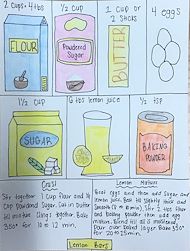 2 Cups + 4 tbs
1/2 Cup
1 Cup or
2 Sticks
4 eggs
FLOUR
Powdered
Sugar
BUTTER
1 1/2 Cup
6 tbs lemon juice
1/2 tsp
SUGAR
BAKING
POWDER
Crust
Stir together 1 Cup Flour and 1/2
Cup Powdered Sugar. Cut in butter
till mixture clings together. Bake
350° for 10 to 12 min.
Lemon Mixture
Beat eggs and then add Sugar and
lemon juice. Beat till slightly thick and
Smooth (8 to 10 min). Stir 4 tbs flour
and baking powder then add egg
mixture. Blend till all is moistened.
Pour over baked layer. Bake 350°
for 20 to 25 min.
Lemon Bars